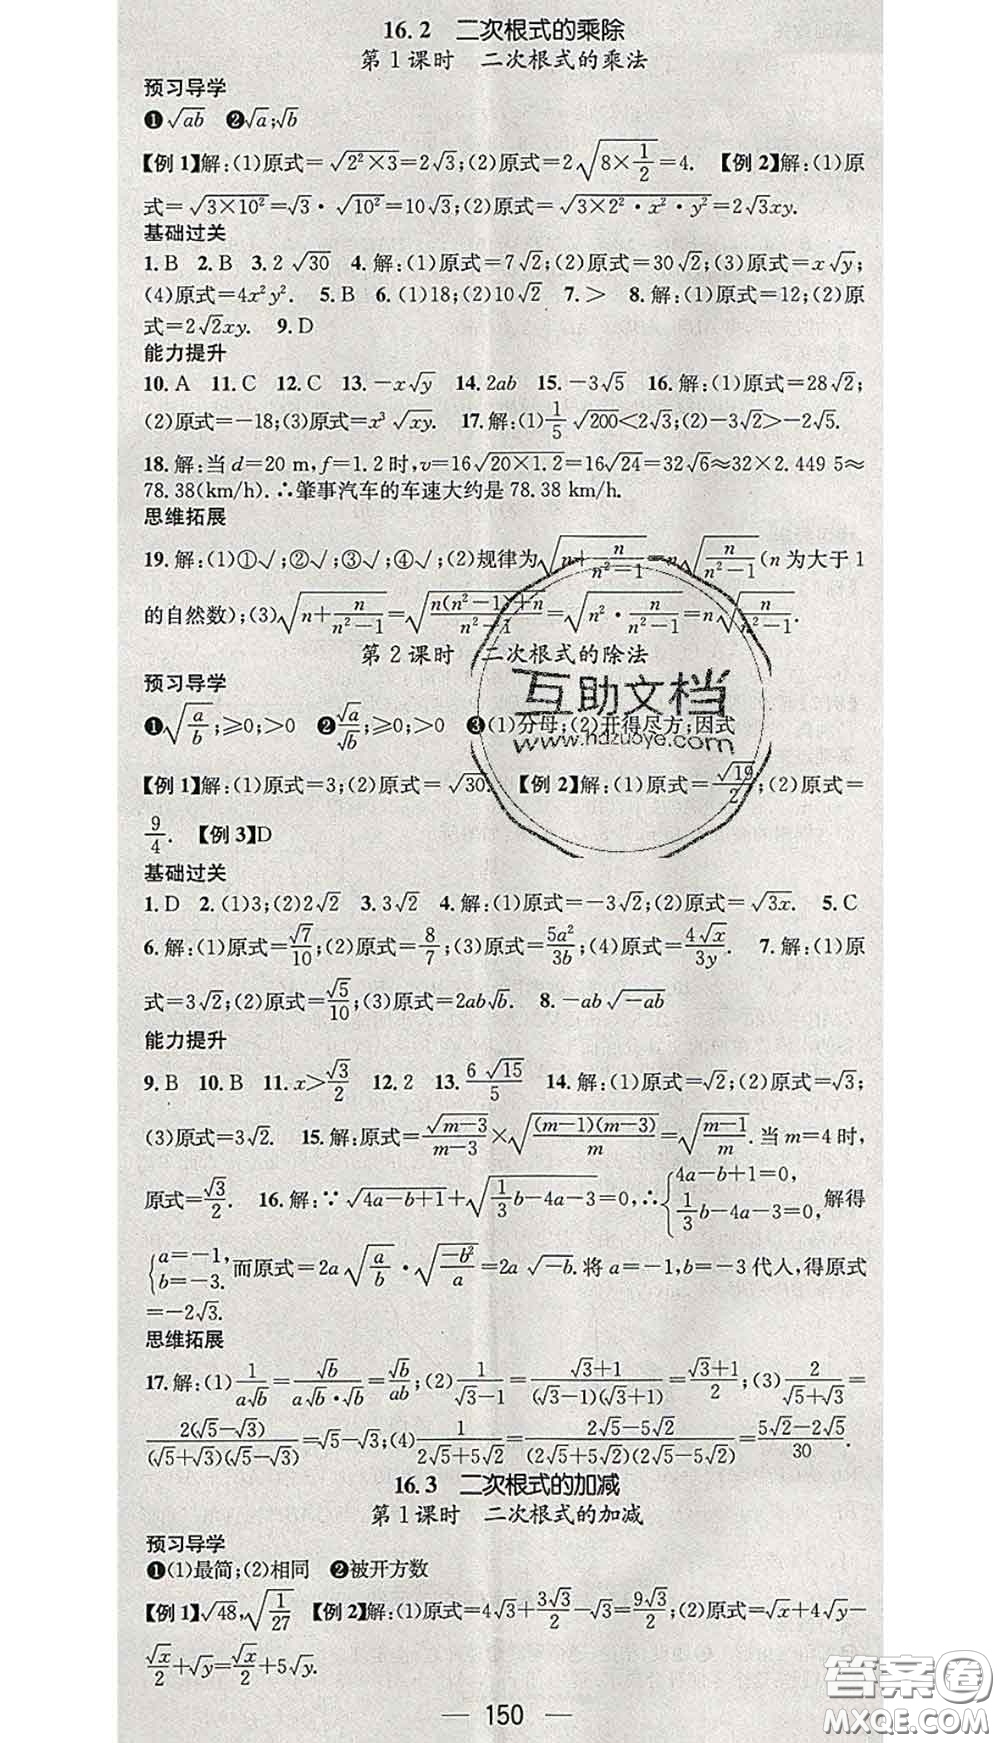 16.2 二次根式的乘除
第1课时 二次根式的乘法
预习导学
❶√ab ❷√a;√b
【例1】解:(1)原式=√(2²×3)=2√3;(2)原式=2√(8×1/2)=4. 【例2】解:(1)原
式=√(3×10²)=√3·√(10²)=10√3;(2)原式=√(3×2²·x²·y²)=2√3xy.
基础过关
1.B 2.B 3.2√30 4.解:(1)原式=7√2;(2)原式=30√2;(3)原式=x√y;
(4)原式=4x²y². 5.B 6.(1)18;(2)10√2 7.> 8.解:(1)原式=12;(2)原
式=2√2xy. 9.D
能力提升
10.A 11.C 12.C 13.-x√y 14.2ab 15.-3√5 16.解:(1)原式=28√2;
(2)原式=-18;(3)原式=x³√xy. 17.解:(1)1/5√200<2√3;(2)-3√2>-2√5.
18.解:当d=20 m,f=1.2时,v=16√(20×1.2)=16√24=32√6≈32×2.449 5≈
78.38(km/h).∴肇事汽车的车速大约是78.38 km/h.
思维拓展
19.解:(1)①√;②√;③√;④√;(2)规律为√(n+n/(n²-1))=n√(n/(n²-1))(n为大于1
的自然数);(3)√(n+n/(n²-1))=√((n(n²-1)+n)/(n²-1))=√(n²·n/(n²-1))=n√(n/(n²-1)).
第2课时 二次根式的除法
预习导学
❶√(a/b);≥0;>0 ❷√a/√b;≥0;>0 ❸(1)分母;(2)开得尽方;因式
【例1】解:(1)原式=3;(2)原式=√30. 【例2】解:(1)原式=√19/2;(2)原式=
9/4. 【例3】D
基础过关
1.D 2.(1)3;(2)2√2 3.3√2 4.解:(1)原式=-3√2;(2)原式=√3x. 5.C
6.解:(1)原式=√7/10;(2)原式=8/7;(3)原式=5a²/3b;(4)原式=4√x/3y. 7.解:(1)原
式=3√2;(2)原式=√5/10;(3)原式=2ab√b. 8.-ab√-ab
能力提升
9.B 10.B 11.x>√3/2 12.2 13.6√15/5 14.解:(1)原式=√2;(2)原式=√3;
(3)原式=3√2. 15.解:原式=√(m-3)/(m-3)×√((m-1)(m-3)/m)=√((m-1)/m).当m=4时,
原式=√3/2. 16.解:∵√(4a-b+1)+√(1/3b-4a-3)=0,∴{4a-b+1=0, 1/3b-4a-3=0,解得
{a=-1, b=-3.而原式=2a√(a/b)·√(-b²/a)=2a√-b.将a=-1,b=-3代人,得原式
=-2√3.
思维拓展
17.解:(1)1/(a√b)=√b/(a√b·√b)=√b/ab;(2)1/(√3-1)=(√3+1)/((√3-1)(√3+1))=(√3+1)/2;(3)2/(√5+√3)=
2(√5-√3)/((√5+√3)(√5-√3))=√5-√3;(4)1/(2√5+5√2)=(2√5-5√2)/((2√5+5√2)(2√5-5√2))=(5√2-2√5)/30.
16.3 二次根式的加减
第1课时 二次根式的加减
预习导学
❶(1)最简;(2)相同 ❷被开方数
【例1】√48,√(1/27) 【例2】解:(1)原式=4√3+3√3/2-√3=9√3/2;(2)原式=√x+4√y-
√x/2+√y=√x/2+5√y.
— 150 —
互助文档
www.hdzuoye.com
答案圈
MXQE.COM